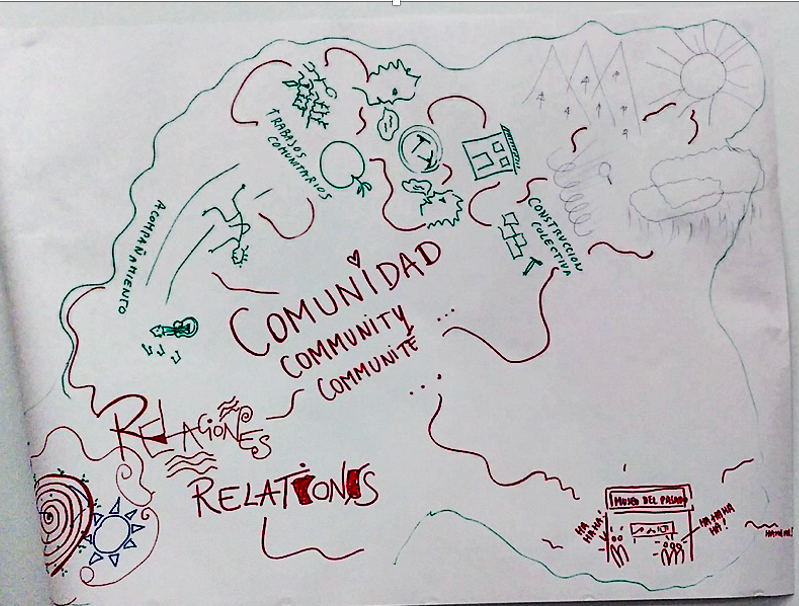 TRABAJOS
COMUNITARIOS
ACOMPAÑAMIENTO
CONSTRUCCION
COLECTIVA
COMUNIDAD
COMMUNITY
COMMUNITÉ
...
...
RELACIONES
RELATIONS
MUSEO DEL PASADO
HA
HAHA!
HA HA HA
HA!
HAHAHA!